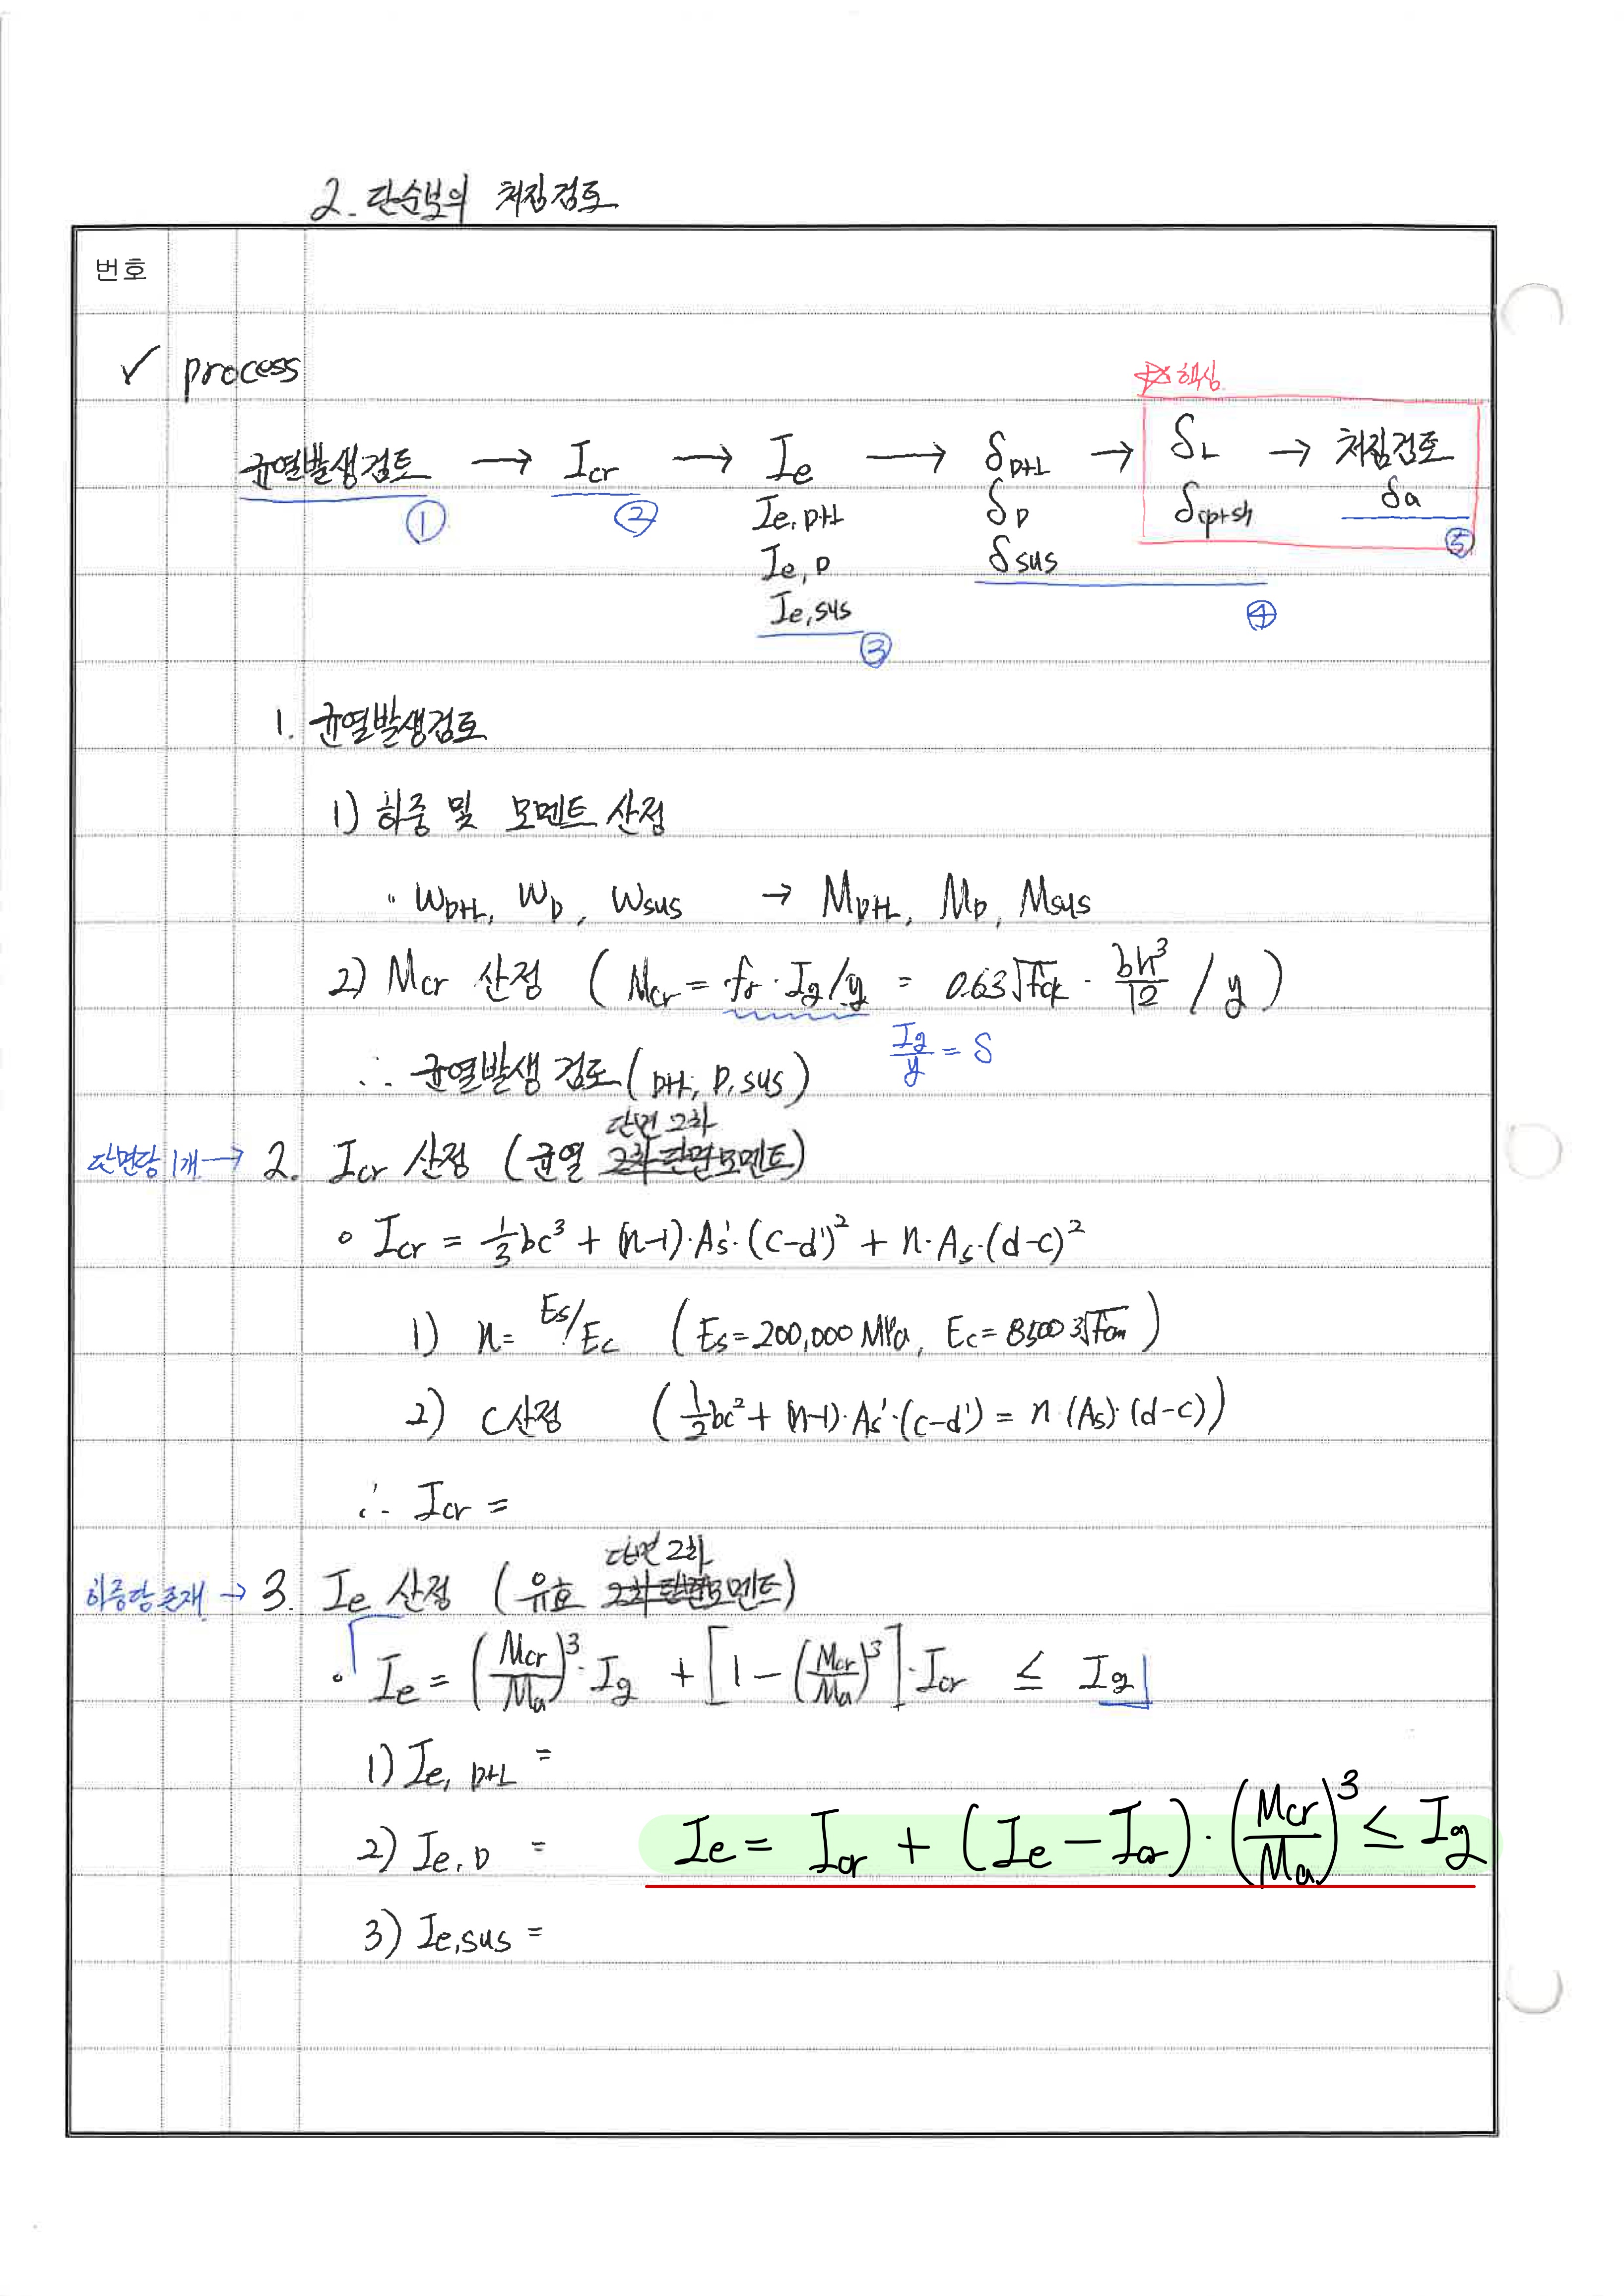 2. 단순보의 처짐검토
번호
✓ process
☆핵심
균열발생검토 → Icr → Ie → δD+L → δL → 처짐검토
① ② Ie, D+L δD δcp+sh δa ⑤
Ie, D δsus ④
Ie, sus ③
1. 균열발생검토
1) 하중 및 모멘트 산정
∘ WD+L, WD, Wsus → MD+L, MD, Msus
2) Mcr 산정 ( Mcr = fr · Ig/y = 0.63√fck · bh³/12 / y )
Ig/y = S
∴ 균열발생 검토 ( D+L, D, sus )
단면 2차
단면당 1개 → 2. Icr 산정 ( 균열 2차 단면모멘트 )
∘ Icr = 1/3 bc³ + (n-1)·As'·(c-d')² + n·As·(d-c)²
1) n = Es/Ec ( Es = 200,000 MPa, Ec = 8500 3√fcm )
2) C산정 ( 1/2 bc² + (n-1)·As'·(c-d') = n·(As)·(d-c) )
∴ Icr =
단면 2차
하중당 존재 → 3. Ie 산정 ( 유효 2차 단면모멘트 )
∘ Ie = (Mcr/Ma)³·Ig + [1 - (Mcr/Ma)³]·Icr ≤ Ig
1) Ie, D+L =
2) Ie, D = Ie = Icr + (Ie - Icr)·(Mcr/Ma)³ ≤ Ig
3) Ie, sus =